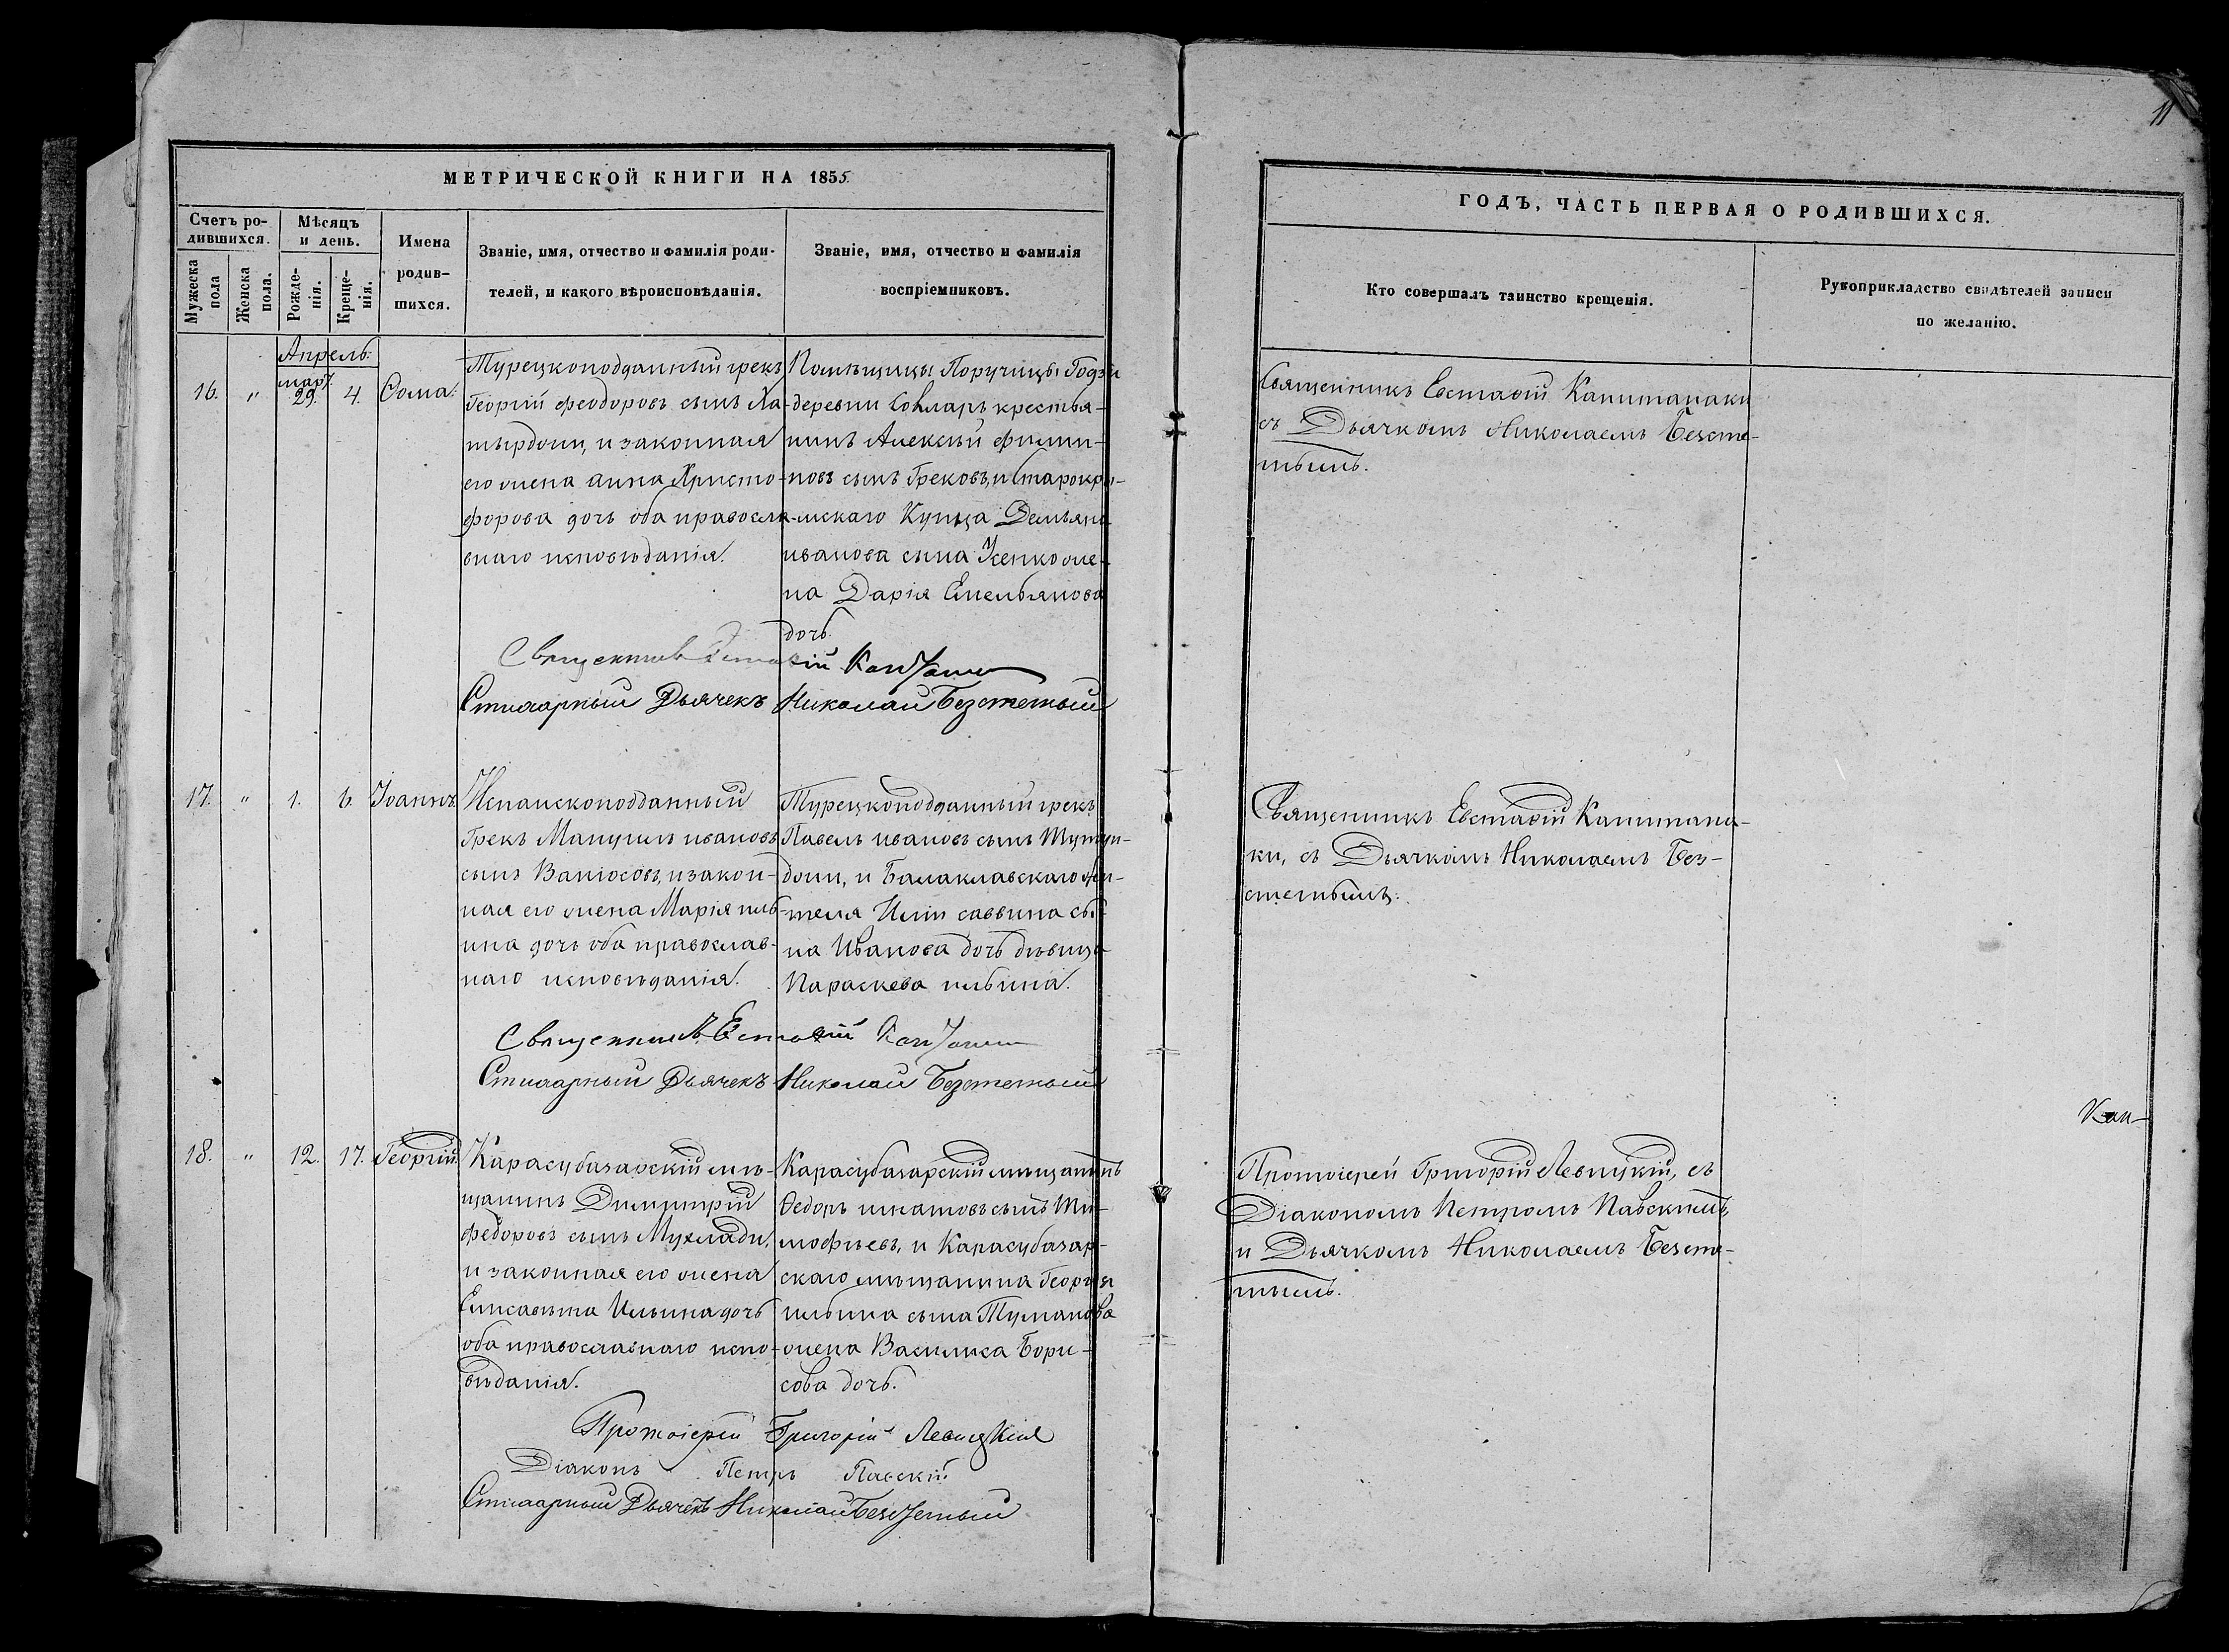 11
МЕТРИЧЕСКОЙ КНИГИ НА 1855.
Счетъ ро-
дившихся.
Мужеска
пола
Женска
пола.
Мѣсяцъ
и день.
Рожде-
нія.
Креще-
нія.
Имена
родив-
шихся.
Званіе, имя, отчество и фамилія роди-
телей, и какого вѣроисповѣданія.
Званіе, имя, отчество и фамилія
воспріемниковъ.
ГОДЪ, ЧАСТЬ ПЕРВАЯ О РОДИВШИХСЯ.
Кто совершалъ таинство крещенія.
Рукоприкладство свидѣтелей записи
по желанію.
Апрель.
16. " март. 29. 4. Ѳома.
Турецкоподданный грекъ
Георгій феодоровъ сынъ Ха-
тырдчи, и законная
его жена анна Христо-
форова дочь оба правосла-
внаго исповѣданія.
Помѣщицы Поручицы
деревни крестья-
нинъ Алексѣй филип-
повъ сынъ Грековъ, и Старокры-
мскаго Купца Демьяна
иванова сына Усенко же-
на Дарія Емельянова
дочь.
Священникъ Евстафій Капитанаки
съ Дьячкомъ Николаемъ Безсте-
тнымъ.
Священникъ Евстафій
Стихарный Дьячекъ Николай Безстетный
17. " 1. 6. Іоаннъ.
Испанскоподданный
Грекъ Мануилъ ивановъ
сынъ Ваніосовъ, и закон-
ная его жена Марія иль-
ина дочь оба православ-
наго исповѣданія.
Турецкоподданный грекъ
Павелъ ивановъ сынъ Тутун-
дчи, и Балаклавскаго жи-
теля Иліи саввина сы-
на Иванова дочь дѣвица
Параскева ильина.
Священникъ Евстафій Капитана-
ки, съ Дьячкомъ Николаемъ Без-
стетнымъ.
Священникъ Евстафій
Стихарный Дьячекъ Николай Безстетный
18. " 12. 17. Георгій.
Карасубазарскій мѣ-
щанинъ Димитрій
федоровъ сынъ
и законная его жена
Елисавета Ильина дочь
оба православнаго испо-
вѣданія.
Карасубазарскій мѣщанинъ
Ѳедоръ игнатовъ сынъ Ти-
мофѣевъ, и Карасубазар-
скаго мѣщанина Георгія
ильина сына Туманова
жена Василиса Бори-
сова дочь.
Протоіерей Григорій Левицкій, съ
Діакономъ Петромъ Павскимъ,
и Дьячкомъ Николаемъ Безсте-
тнымъ.
Протоіерей Григорій Левицкій
Діаконъ Петръ Павскій
Стихарный Дьячекъ Николай Безстетный